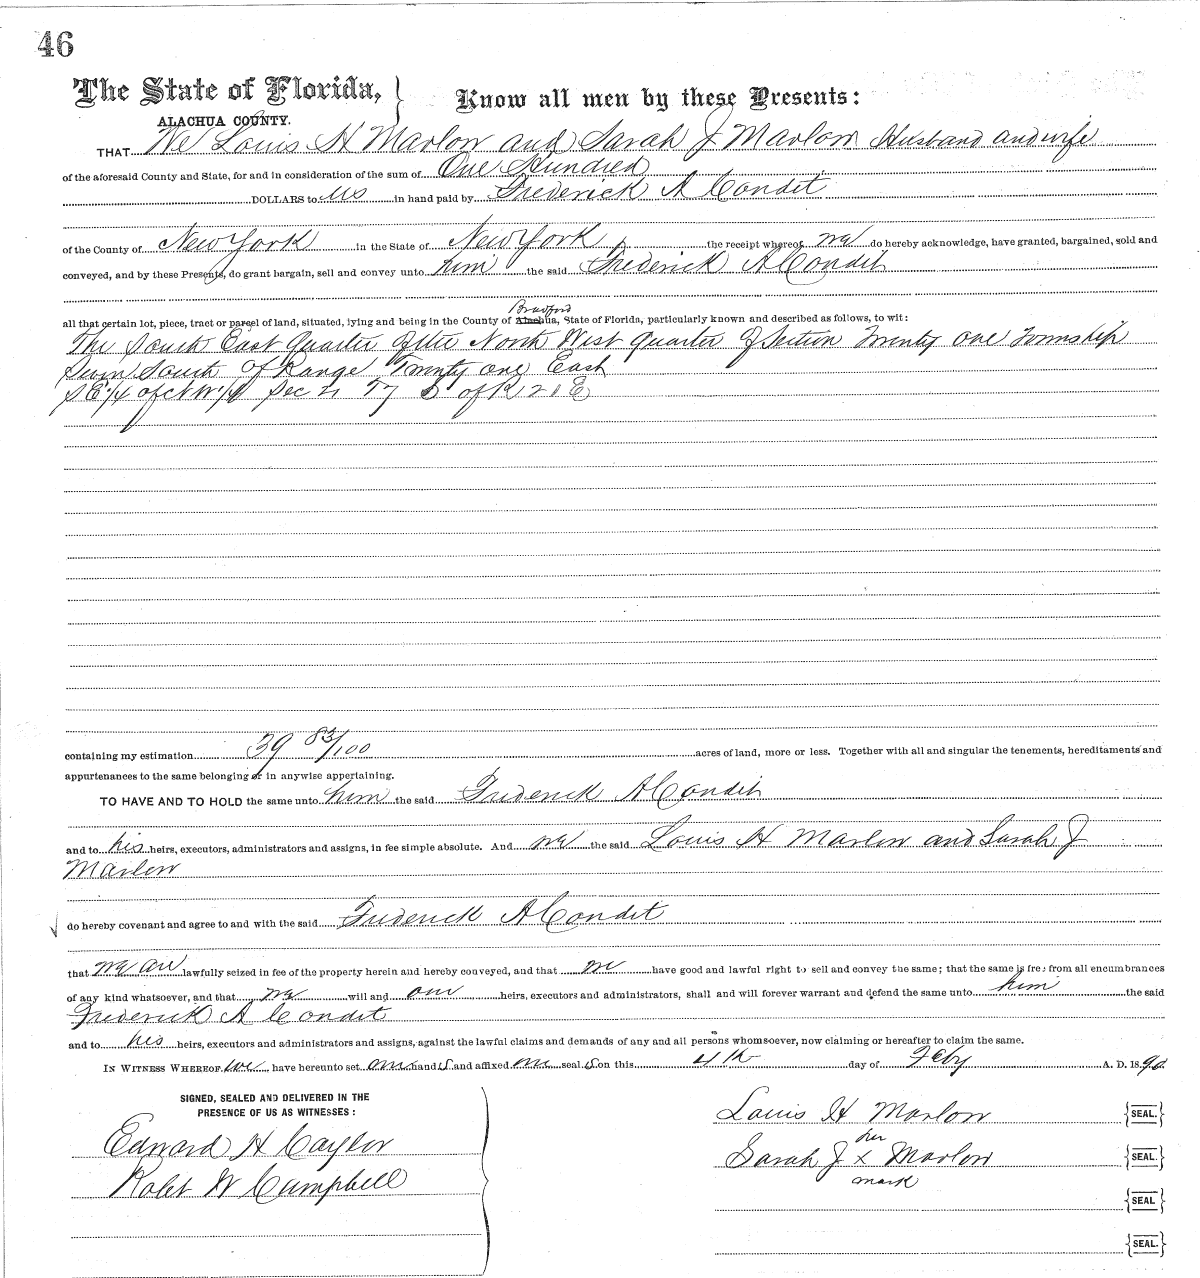 46
The State of Florida, } Know all men by these Presents:
ALACHUA COUNTY.
THAT We Louis H Marlow and Sarah J Marlow Husband and wife
of the aforesaid County and State, for and in consideration of the sum of One Hundred
DOLLARS to us in hand paid by Frederick A Condit
of the County of New York in the State of New York the receipt whereof we do hereby acknowledge, have granted, bargained, sold and
conveyed, and by these Presents, do grant bargain, sell and convey unto him the said Frederick A Condit
Bradford
all that certain lot, piece, tract or parcel of land, situated, lying and being in the County of Alachua, State of Florida, particularly known and described as follows, to wit:
The South East Quarter of the North West Quarter of Section Twenty one Township
Seven South of Range Twenty one East
SE 1/4 of NW 1/4 Sec 21 T7 S of R 21 E
containing my estimation 39 83/100 acres of land, more or less. Together with all and singular the tenements, hereditaments and
appurtenances to the same belonging or in anywise appertaining.
TO HAVE AND TO HOLD the same unto him the said Frederick A Condit
and to his heirs, executors, administrators and assigns, in fee simple absolute. And we the said Louis H Marlow and Sarah J
Marlow
do hereby covenant and agree to and with the said Frederick A Condit
that we are lawfully seized in fee of the property herein and hereby conveyed, and that we have good and lawful right to sell and convey the same; that the same is free from all encumbrances
of any kind whatsoever, and that we will and our heirs, executors and administrators, shall and will forever warrant and defend the same unto him the said
Frederick A Condit
and to his heirs, executors and administrators and assigns, against the lawful claims and demands of any and all persons whomsoever, now claiming or hereafter to claim the same.
IN WITNESS WHEREOF, we have hereunto set our hands and affixed our seal s on this 4th day of Feby A. D. 1890.
SIGNED, SEALED AND DELIVERED IN THE
PRESENCE OF US AS WITNESSES:
Louis H Marlow {SEAL.}
Edward H Caylor
her
Sarah J x Marlow {SEAL.}
mark
Robt W Campbell
{SEAL}
{SEAL.}